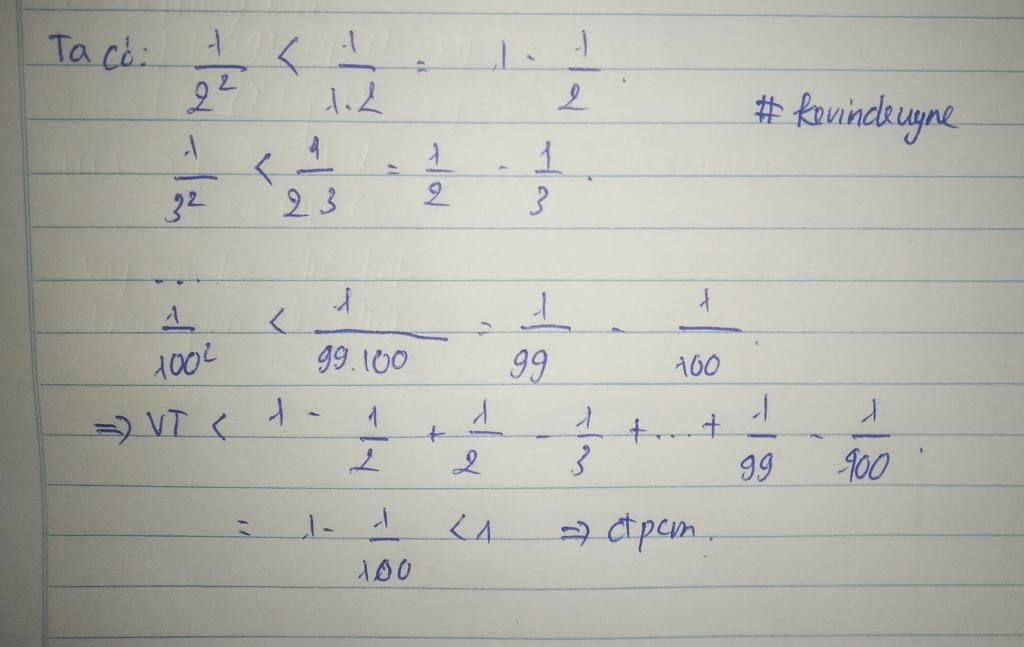 Ta có: 1/2² < 1/1.2 = 1 - 1/2.
# kevindeuyne
1/3² < 1/2 3 = 1/2 - 1/3.
...
1/100² < 1/99.100 = 1/99 - 1/100.
⇒ VT < 1 - 1/2 + 1/2 - 1/3 + ... + 1/99 - 1/100.
= 1 - 1/100 < 1 ⇒ đpcm.